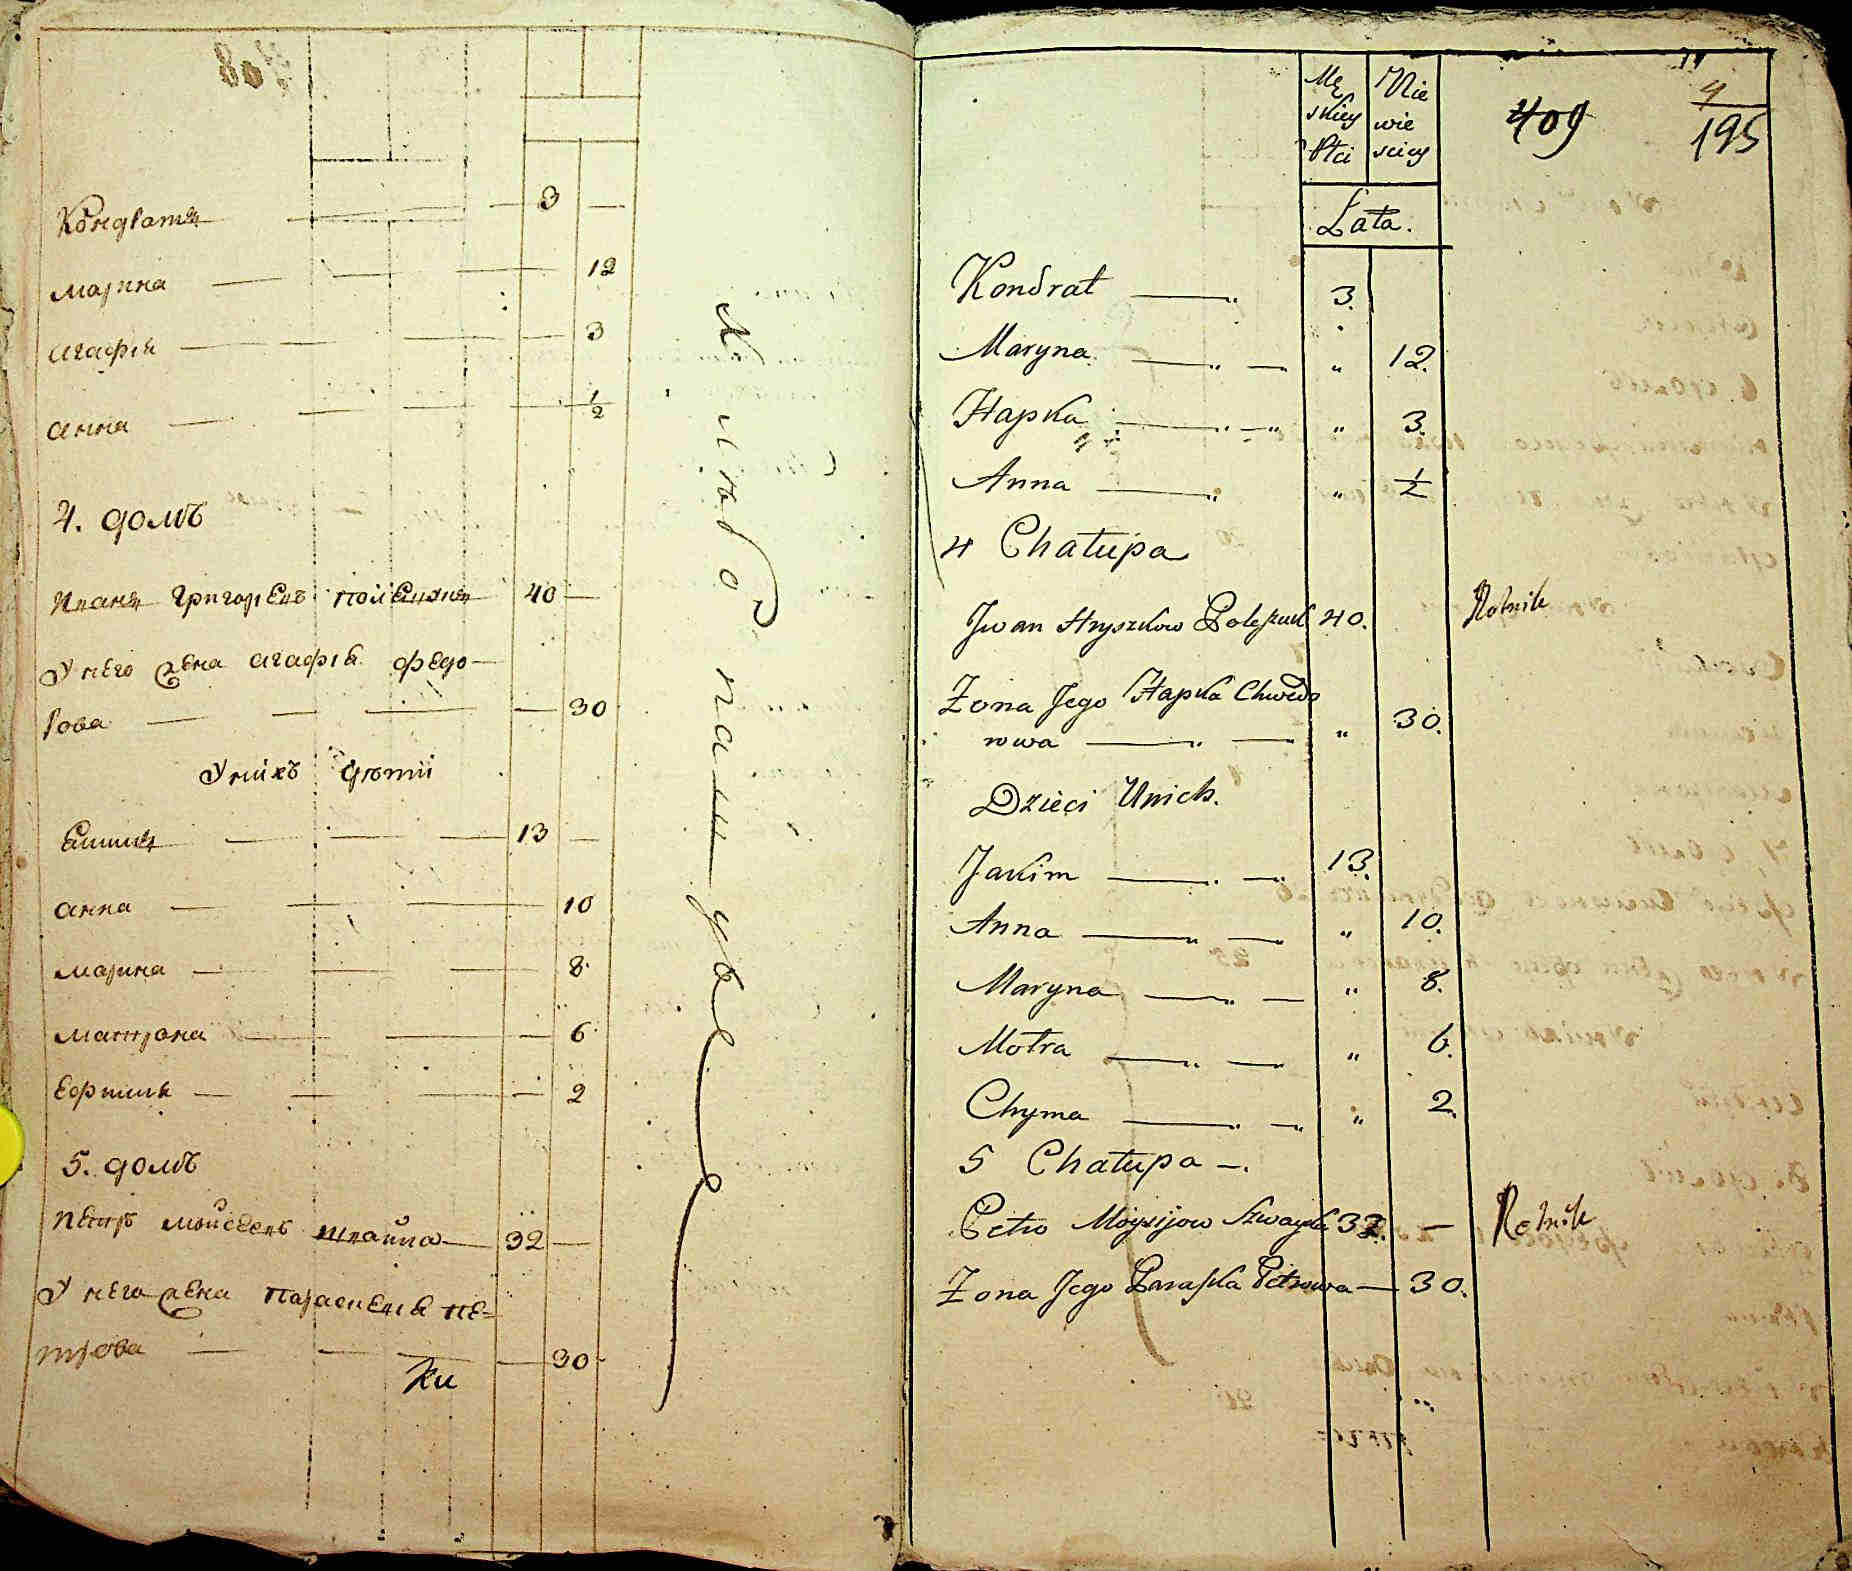 408
Кондратъ 3 —
Марина 12
Агафія 3
Анна ½
4. домъ
Иванъ Григорьевъ Полещукъ 40 —
У него жена Агафія Федо-
рова 30
У нихъ дѣти
Екимъ 13 —
Анна 10
Марина 8
Матрона 6
Ефимія 2
5. домъ
Петръ Моисеевъ Швайка 32 —
У него жена Парасковія Пе-
трова 30
Ки
Mę Nie
skiey wie
Płci sciey
Lata.
409
4
195
Kondrat 3.
Maryna „ 12.
Hapka „ 3.
Anna „ ½
4 Chałupa
Jwan Hryszkow Poleszuk 40. Rolnik
Zona Jego Hapka Chwedo
rowa „ 30.
Dzieci Unich.
Jakim 13.
Anna „ 10.
Maryna „ 8.
Motra „ 6.
Chyma „ 2.
5 Chałupa —.
Petro Moysijow Szwayka 32. — Rolnik
Zona Jego Paraska Petrowa — 30.